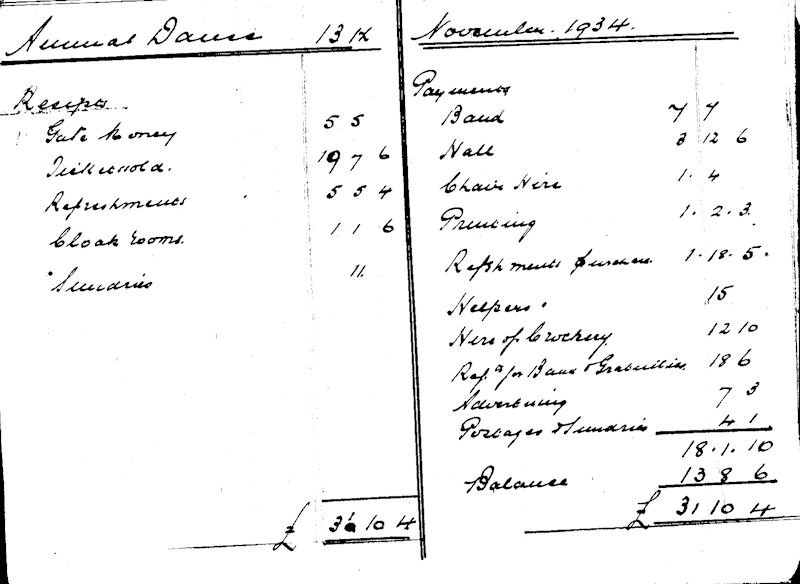 Annual Dance 13th
Receipts
Gate Money 5 5
Tickets sold. 19 7 6
Refreshments 5 5 4
Cloak rooms. 1 1 6
Sundries 11
£ 31 10 4
November. 1934.
Payments
Band 7 7
Hall 3 12 6
Chair Hire 1. 4
Printing 1. 2. 3.
Refshments purchase. 1. 18. 5.
Helpers. 15
Hire of Crockery. 12 10
Ref. for Band & Gratuities. 18 6
Advertising 7 3
Postages & Sundries 4 1
18. 1. 10
Balance 13 8 6
£ 31 10 4